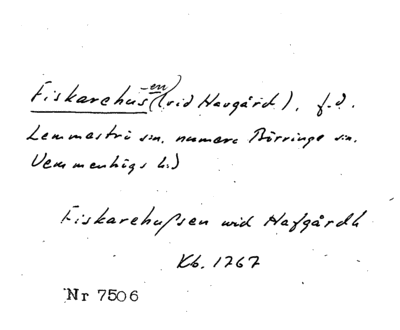 Fiskarehus(-en) (vid Havgård), f.d.
Lemmeströ sn. numera Börringe sn.
Vemmenhögs hd
Fiskarehußen wid Hafgårdh
Kb. 1767
Nr 7506